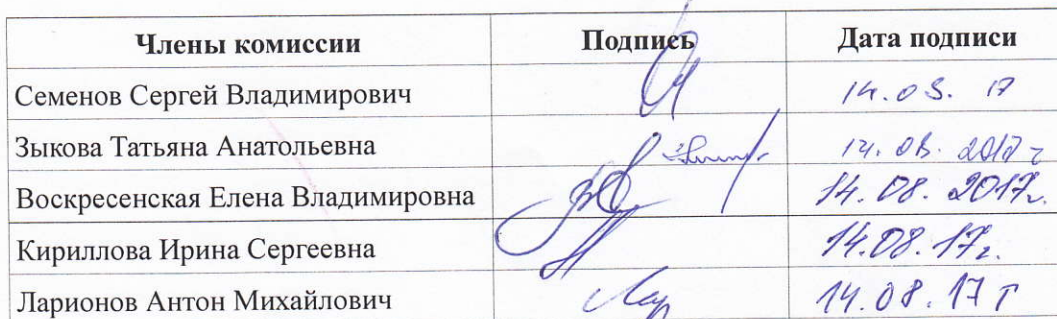 Члены комиссии Подпись Дата подписи
Семенов Сергей Владимирович 14.08. 17
Зыкова Татьяна Анатольевна 14.08. 2017 г
Воскресенская Елена Владимировна 14.08. 2017г.
Кириллова Ирина Сергеевна 14.08.17г.
Ларионов Антон Михайлович 14.08.17 г